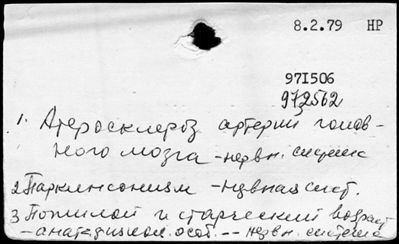 8.2.79 НР
97I506
972562
1. Атеросклероз артерий голов-
ного мозга - нервн. система
2 Паркинсонизм - нервная сист.
3 Пожилой и старческий возраст
- анат.-физиол. особ. -- нервн. система